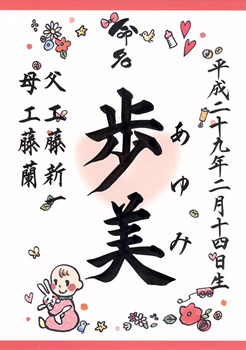 命名
平成二十九年二月十四日生
あゆみ
歩美
父 工藤新一
母 工藤蘭